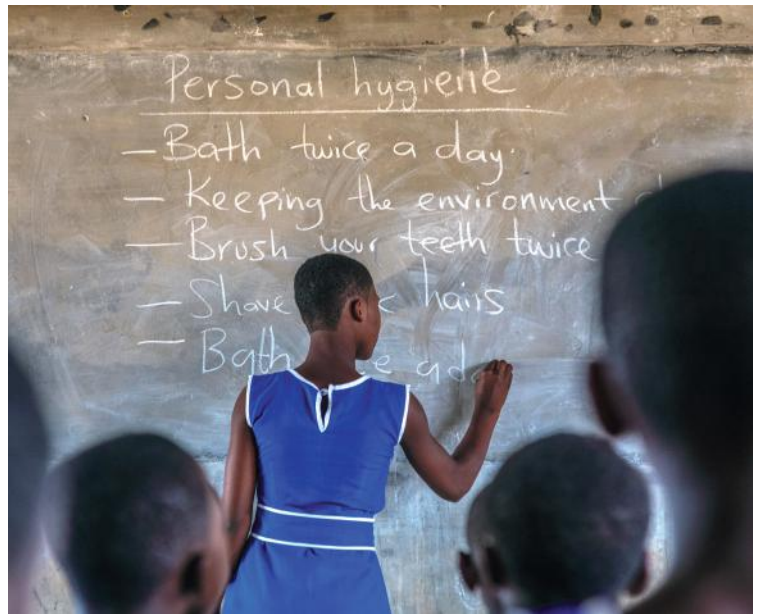 Personal hygiene
— Bath twice a day.
— Keeping the environment
— Brush your teeth twice
— Shave hairs
— Bath